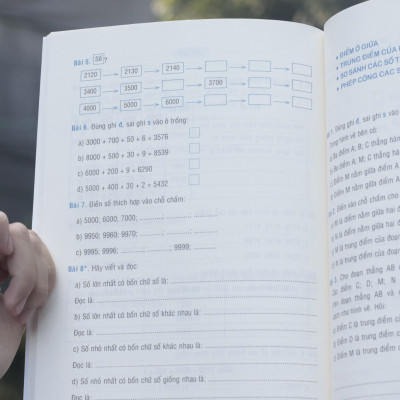 Bài 5. Số ?
2120 2130 2140
3400 3500 3700
4000 5000 6000
Bài 6. Đúng ghi đ, sai ghi s vào ô trống:
a) 3000 + 700 + 50 + 6 = 3576
b) 8000 + 500 + 30 + 9 = 8539
c) 6000 + 200 + 9 = 6290
d) 5000 + 400 + 30 + 2 = 5432
Bài 7. Điền số thích hợp vào chỗ chấm:
a) 5000; 6000; 7000; ............; ............; ............
b) 9950; 9960; 9970; ............; ............; ............
c) 9995; 9996; ............; ............; 9999; ............
Bài 8*. Hãy viết và đọc:
a) Số lớn nhất có bốn chữ số là:
Đọc là:
b) Số lớn nhất có bốn chữ số khác nhau là:
Đọc là:
c) Số nhỏ nhất có bốn chữ số khác nhau là:
Đọc là:
d) Số nhỏ nhất có bốn chữ số giống nhau là:
Đọc là:
ĐIỂM Ở GIỮA
TRUNG ĐIỂM CỦA
SO SÁNH CÁC SỐ T
PHÉP CỘNG CÁC S
1. Đúng ghi đ, sai ghi s vào
trong hình vẽ bên có:
Ba điểm A, B, C thẳng hàn
Ba điểm A; M; C thẳng h
Điểm M nằm giữa điểm A
Điểm N nằm giữa điểm A
Điền vào chỗ chấm cho
M là điểm nằm giữa hai đ
N là điểm nằm giữa hai
M là trung điểm của đoạn
N là trung điểm của đoạn
Cho đoạn thẳng AB
Các điểm C; D; M; N
trên đoạn thẳng AB và
cách như hình vẽ. Hỏi:
Điểm C là trung điểm củ
Điểm D là trung điểm củ
Điểm M là trung điểm c